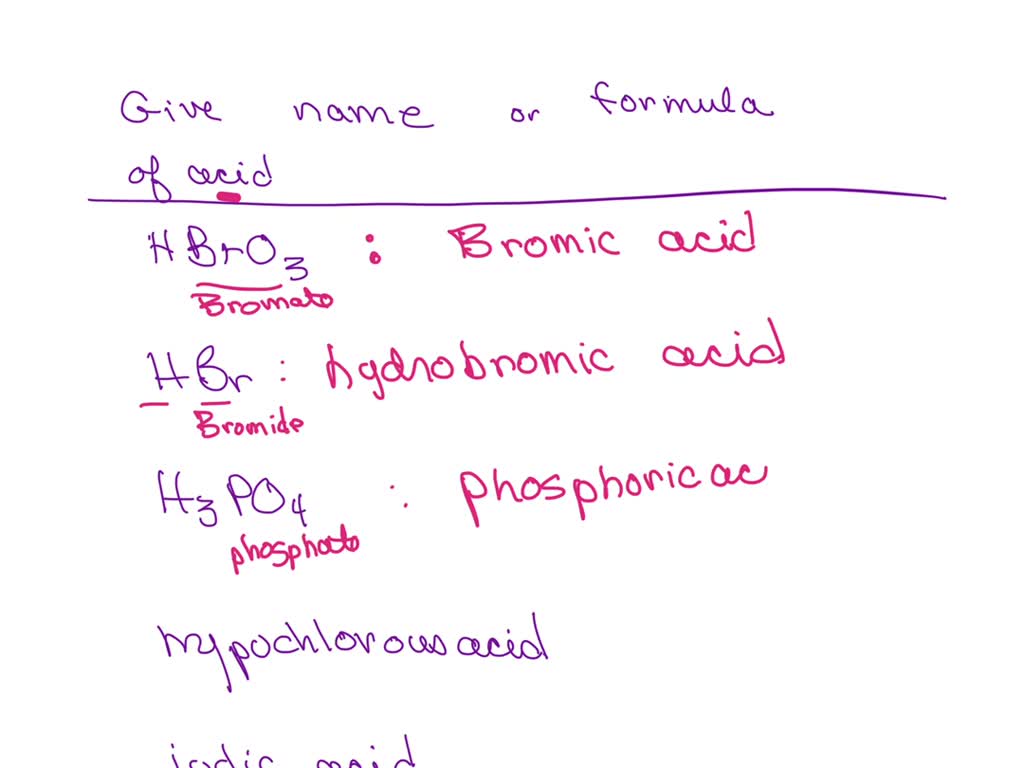 Give name or formula
of acid
HBrO3 : Bromic acid
Bromate
HBr : hydrobromic acid
Bromide
H3PO4 : phosphoric ac
phosphate
hypochlorous acid
iodic acid